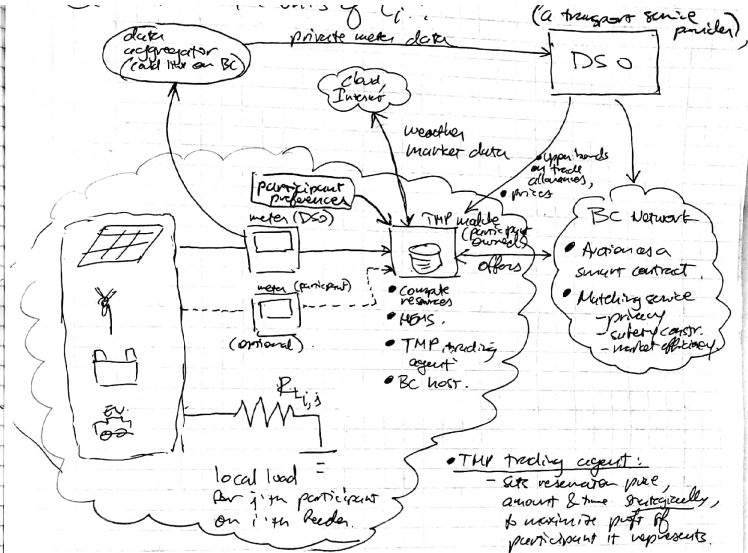 data
aggregator
(could live on BC)
private meter data
(a transport service
provider)
DSO
cloud,
Internet
weather
market data
• upper bounds
on trade
allowances,
• prices
participant
preferences
meter (DSO)
TMP module
(participant
owned)
offers
meter (participant)
(optional)
• Compute
resources
• HEMS.
• TMP trading
agent
• BC host.
BC Network
• Auction as a
smart contract.
• Matching service
- privacy
- safety constr.
- market efficiency
EV
R L i,j
local load
for j'th participant
on i'th feeder.
• TMP trading agent:
- sets reservation price,
amount & time strategically,
to maximize profit of
participant it represents.